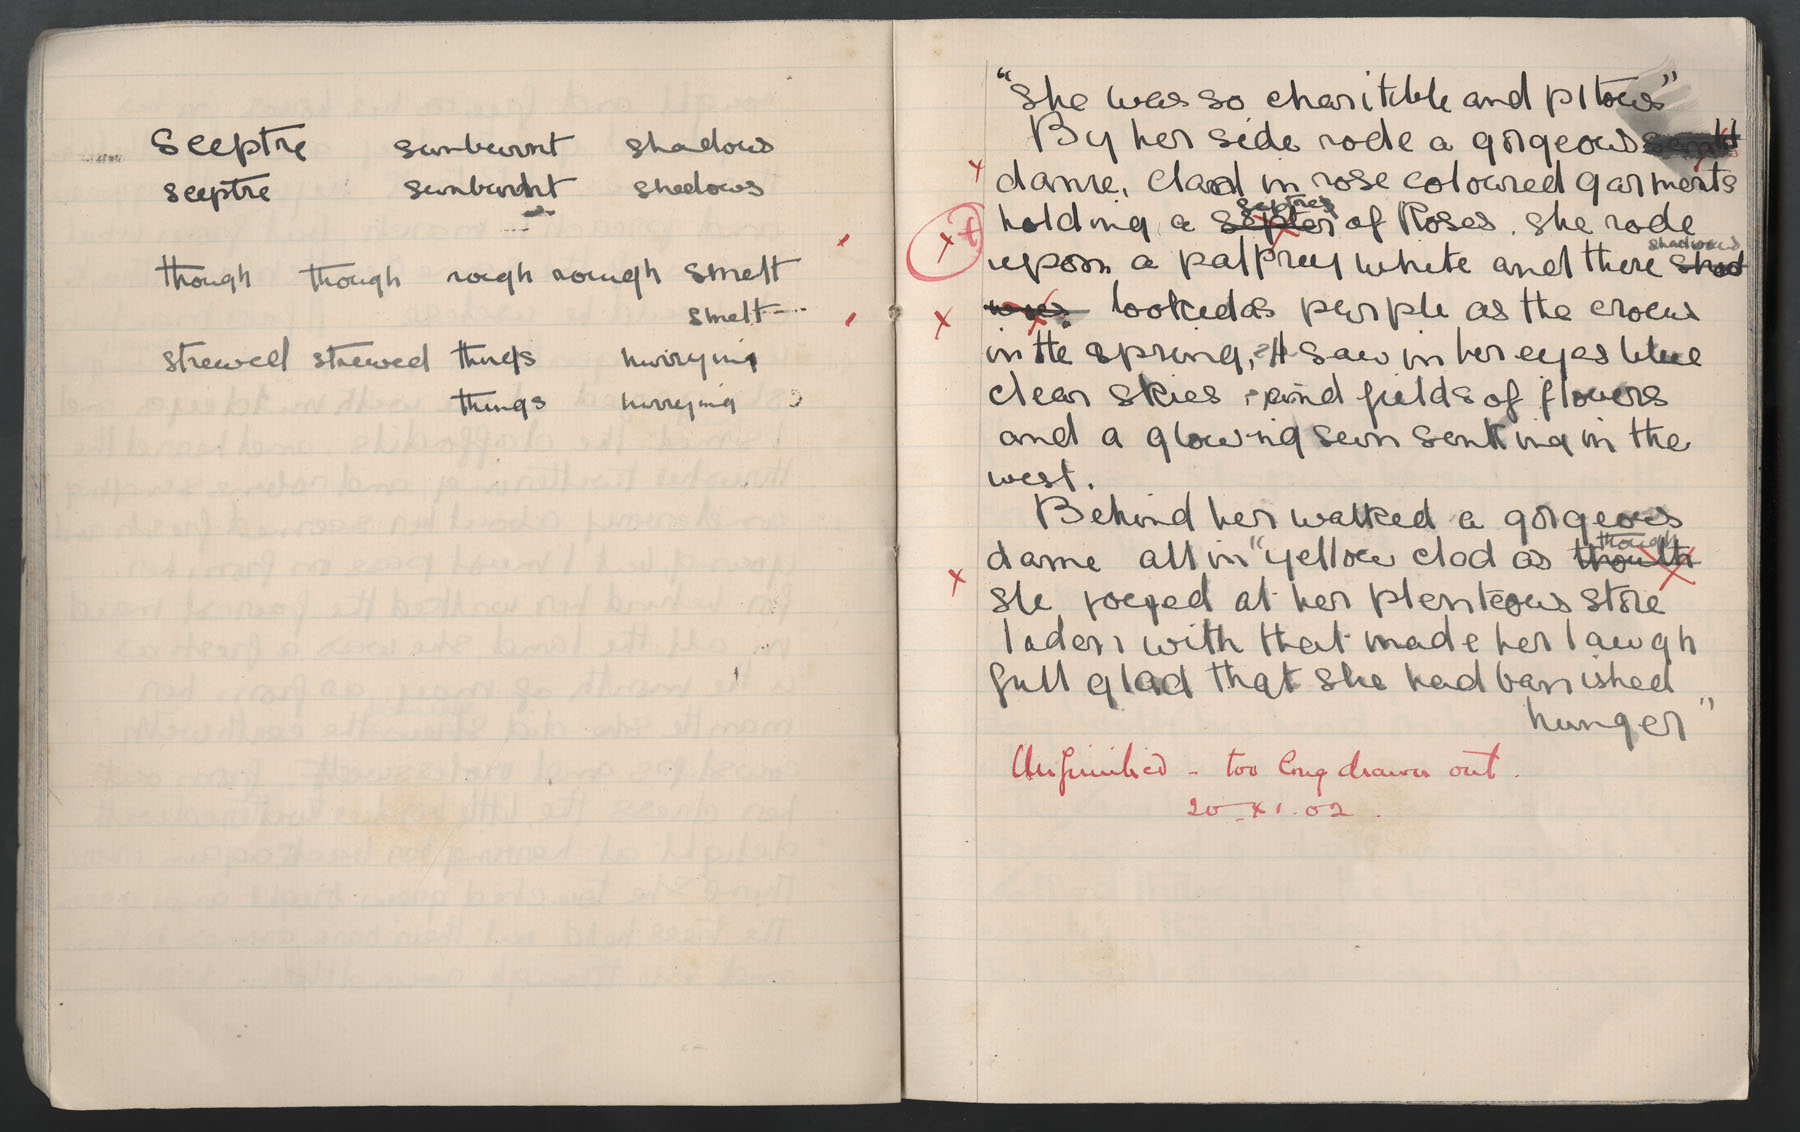 sceptre sunburnt shadows
sceptre sunburnt shadows
though though rough rough smelt
smelt
strewed strewed things hurrying
things hurrying
"She was so charitible and pitous"
By her side rode a gorgeous
dame, clad in rose coloured garments
septres
holding a septer of Roses. She rode
shadows
upon a palfrey white and there shad
ows looked as purple as the crocus
in the spring, I saw in her eyes blue
clear skies and fields of flowers
and a glowing sun senking in the
west.
Behind her walked a gorgeous
though
dame all in "yellow clad as thouth
she joeyed at her plenteous store
laden with that made her laugh
full glad that she had banished
hunger"
Unfinished - too long drawn out.
20.XI.02.